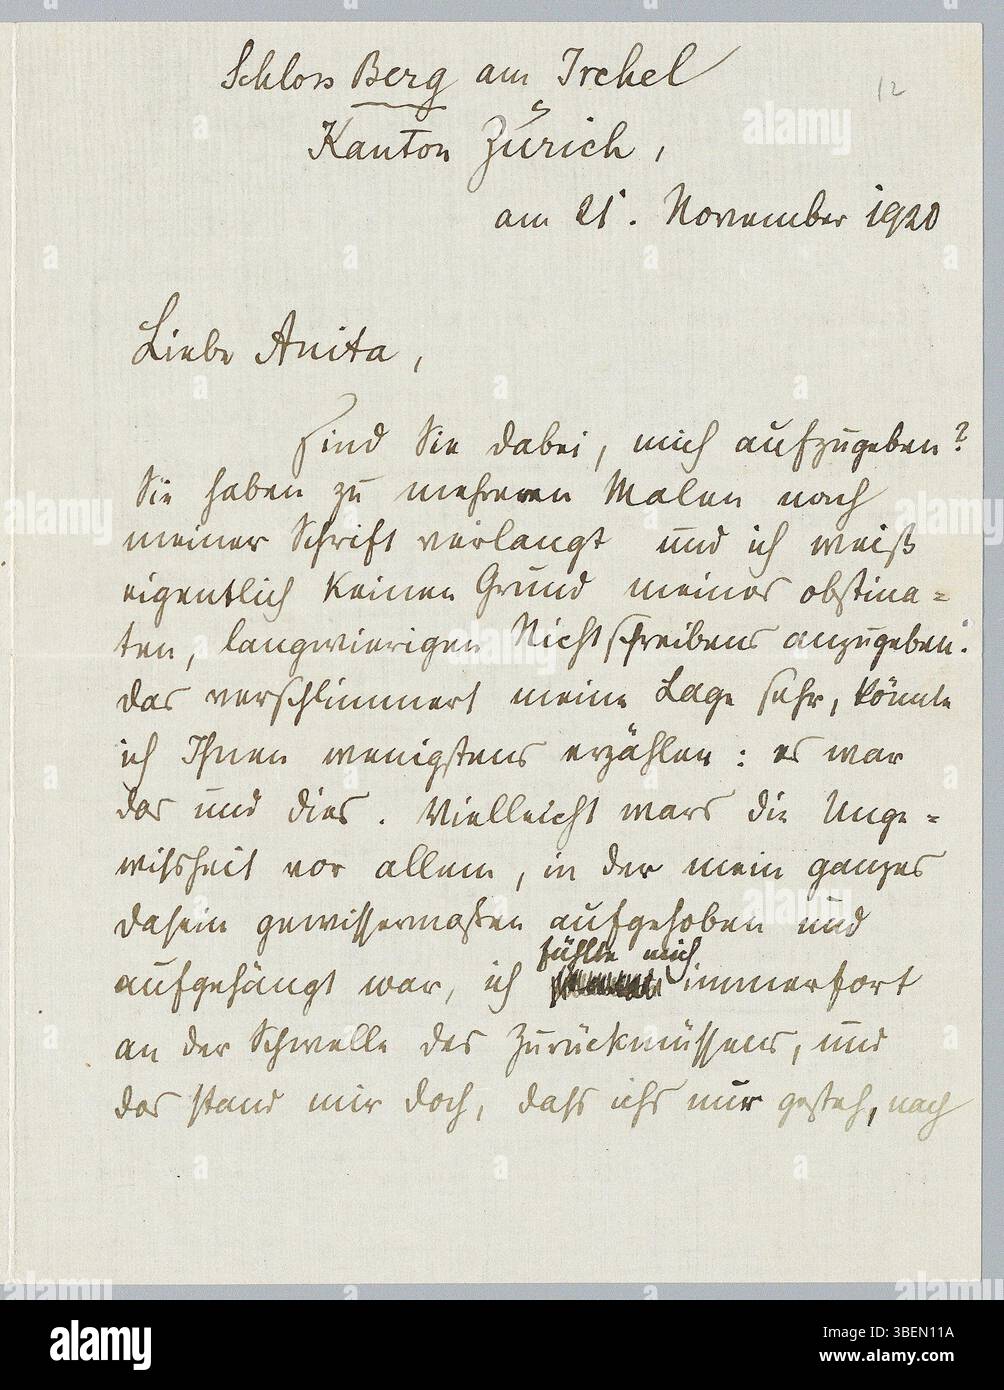 Schloss Berg am Irchel
12
Kanton Zürich,
am 21. November 1920
Liebe Anita,
Sind Sie dabei, mich aufzugeben?
Sie haben zu mehreren Malen nach
meiner Schrift verlangt und ich weiß
eigentlich keinen Grund meines obstina=
ten, langwierigen Nichtschreibens anzugeben.
Das verschlimmert meine Lage sehr, könnte
ich Ihnen wenigstens erzählen: es war
das und dies. Vielleicht wars die Unge=
wissheit vor allem, in der mein ganzes
Dasein gewissermaßen aufgehoben und
aufgehängt war, ich fühlte mich immerfort
an der Schwelle des Zurückmüssens, und
das stand mir doch, dass ichs nur gesteh, nach
alamy
Image ID: 3BEN11A
www.alamy.com